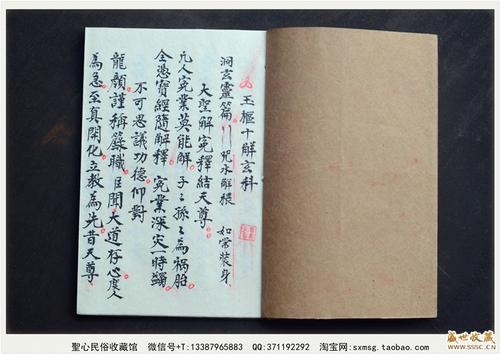 玉樞十解玄科
洞玄靈篇 咒水解穢 如常裝身
大聖解冤釋結天尊
凢人冤業莫能解 子子孫孫為禍胎
全憑寶經隨解釋 冤業深災一時蠲
不可思議功德 仰對
龍顏謹稱籙職 臣聞大道存心度人
為急至真開化立教為先昔天尊
聖心民俗收藏馆 微信号+T:13387965883 QQ:371192292 淘宝网:sxmsg.taobao.com
盛世收藏
WWW.SSSC.CN